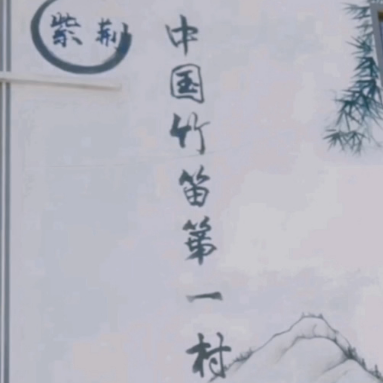 紫荆
中国竹笛第一村